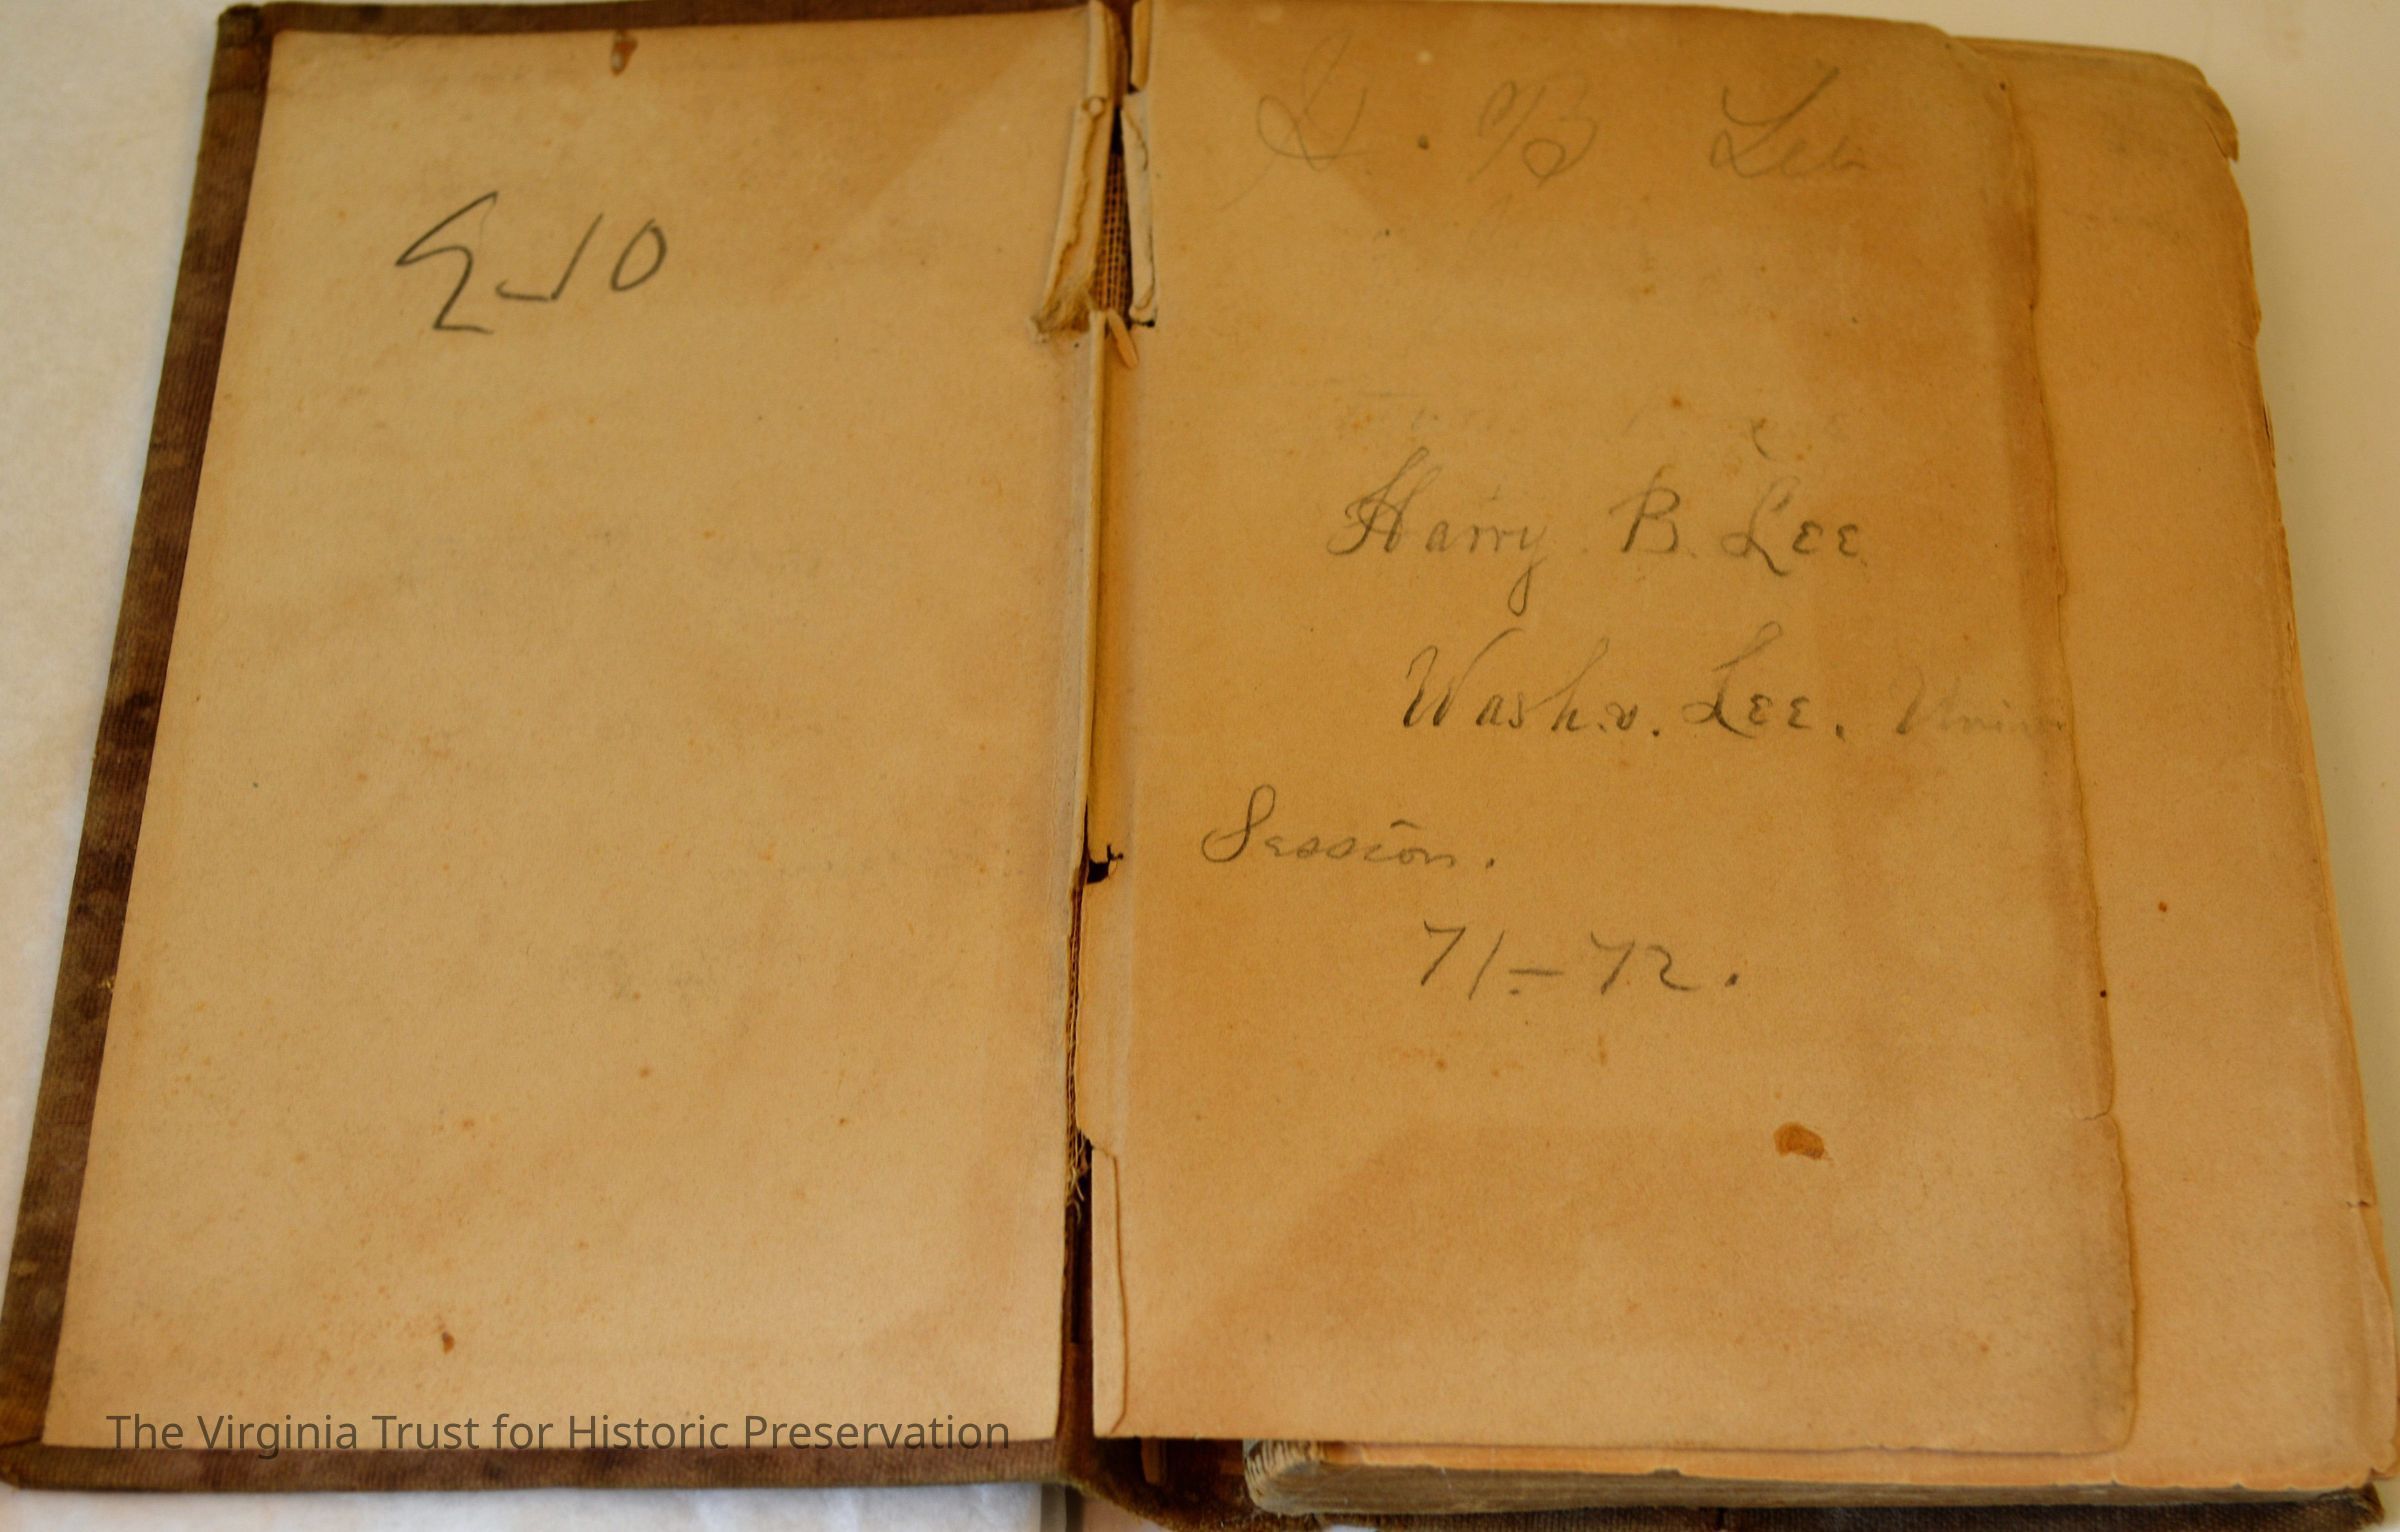 H. B Lee
Harry. B. Lee
Wash. v. Lee. Univ.
Session.
71-72.
The Virginia Trust for Historic Preservation